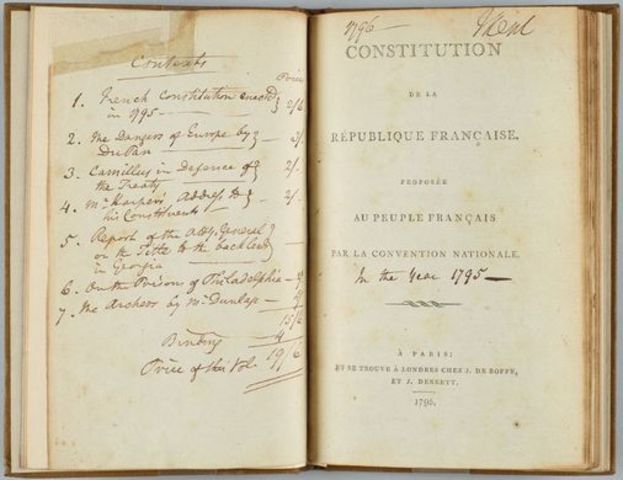 Contents
Price
1. French Constitution enacted
in 1795 — 2/6
2. The Dangers of Europe by
Du Pan — 3/.
3. Camillus in Defence of
the Treaty — 2/.
4. Mr. Harper's Address to
his Constituents — 2/.
5. Report of the Atty. General
on the Title to the back land
in Georgia —
6. On the Prison of Philadelphia —
7. The Archers by Mr. Dunlap —
15/6
Binding 4
Price of this Vol. 19/6
1796 — Kent
CONSTITUTION
DE LA
RÉPUBLIQUE FRANÇAISE,
PROPOSÉE
AU PEUPLE FRANÇAIS
PAR LA CONVENTION NATIONALE.
In the Year 1795 —
À PARIS;
ET SE TROUVE À LONDRES CHEZ J. DE BOFFE,
ET J. DEBRETT.
1796.